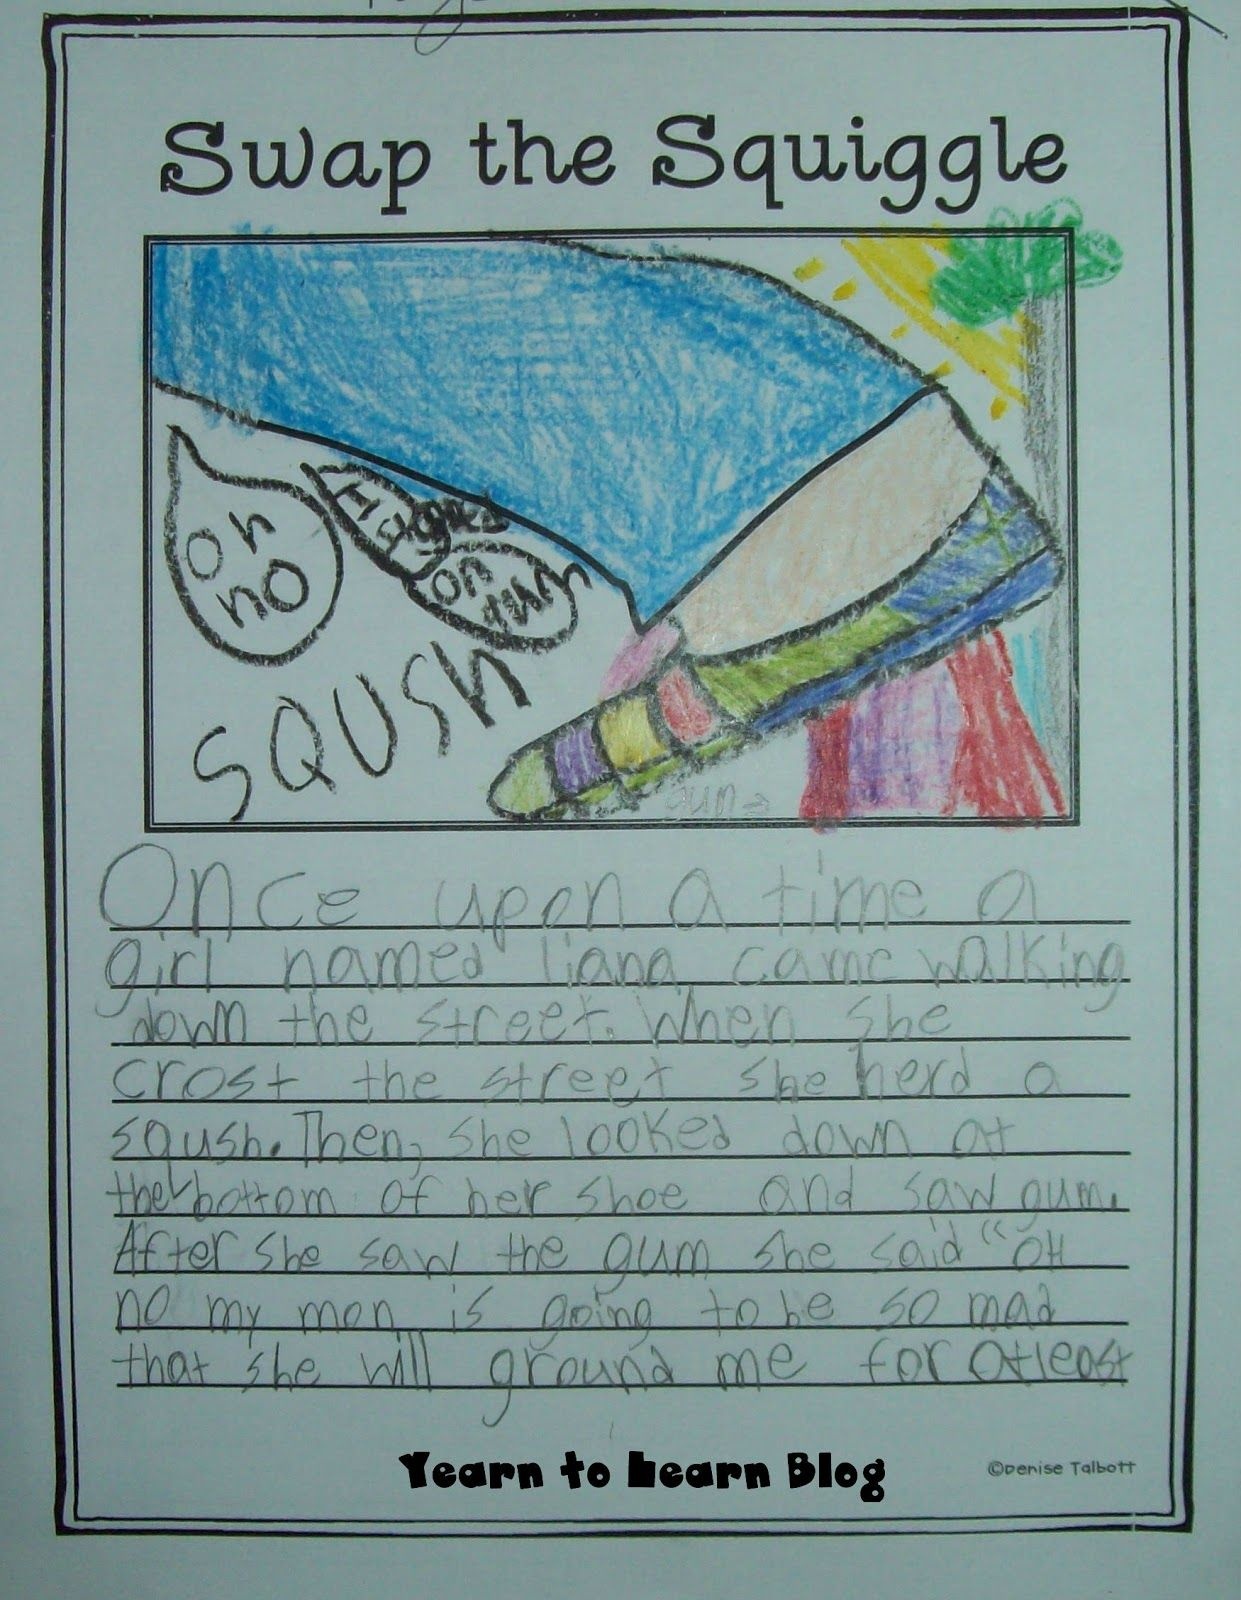 Swap the Squiggle
oh
no
I
stepped
on
gum
SQUSH
gum
Once upon a time a
girl named liana came walking
down the street. When she
crost the street she herd a
sqush. Then, she looked down at
the bottom of her shoe and saw gum.
After she saw the gum she said "OH
no my mon is going to be so mad
that she will ground me for atleast
Yearn to Learn Blog
©Denise Talbott